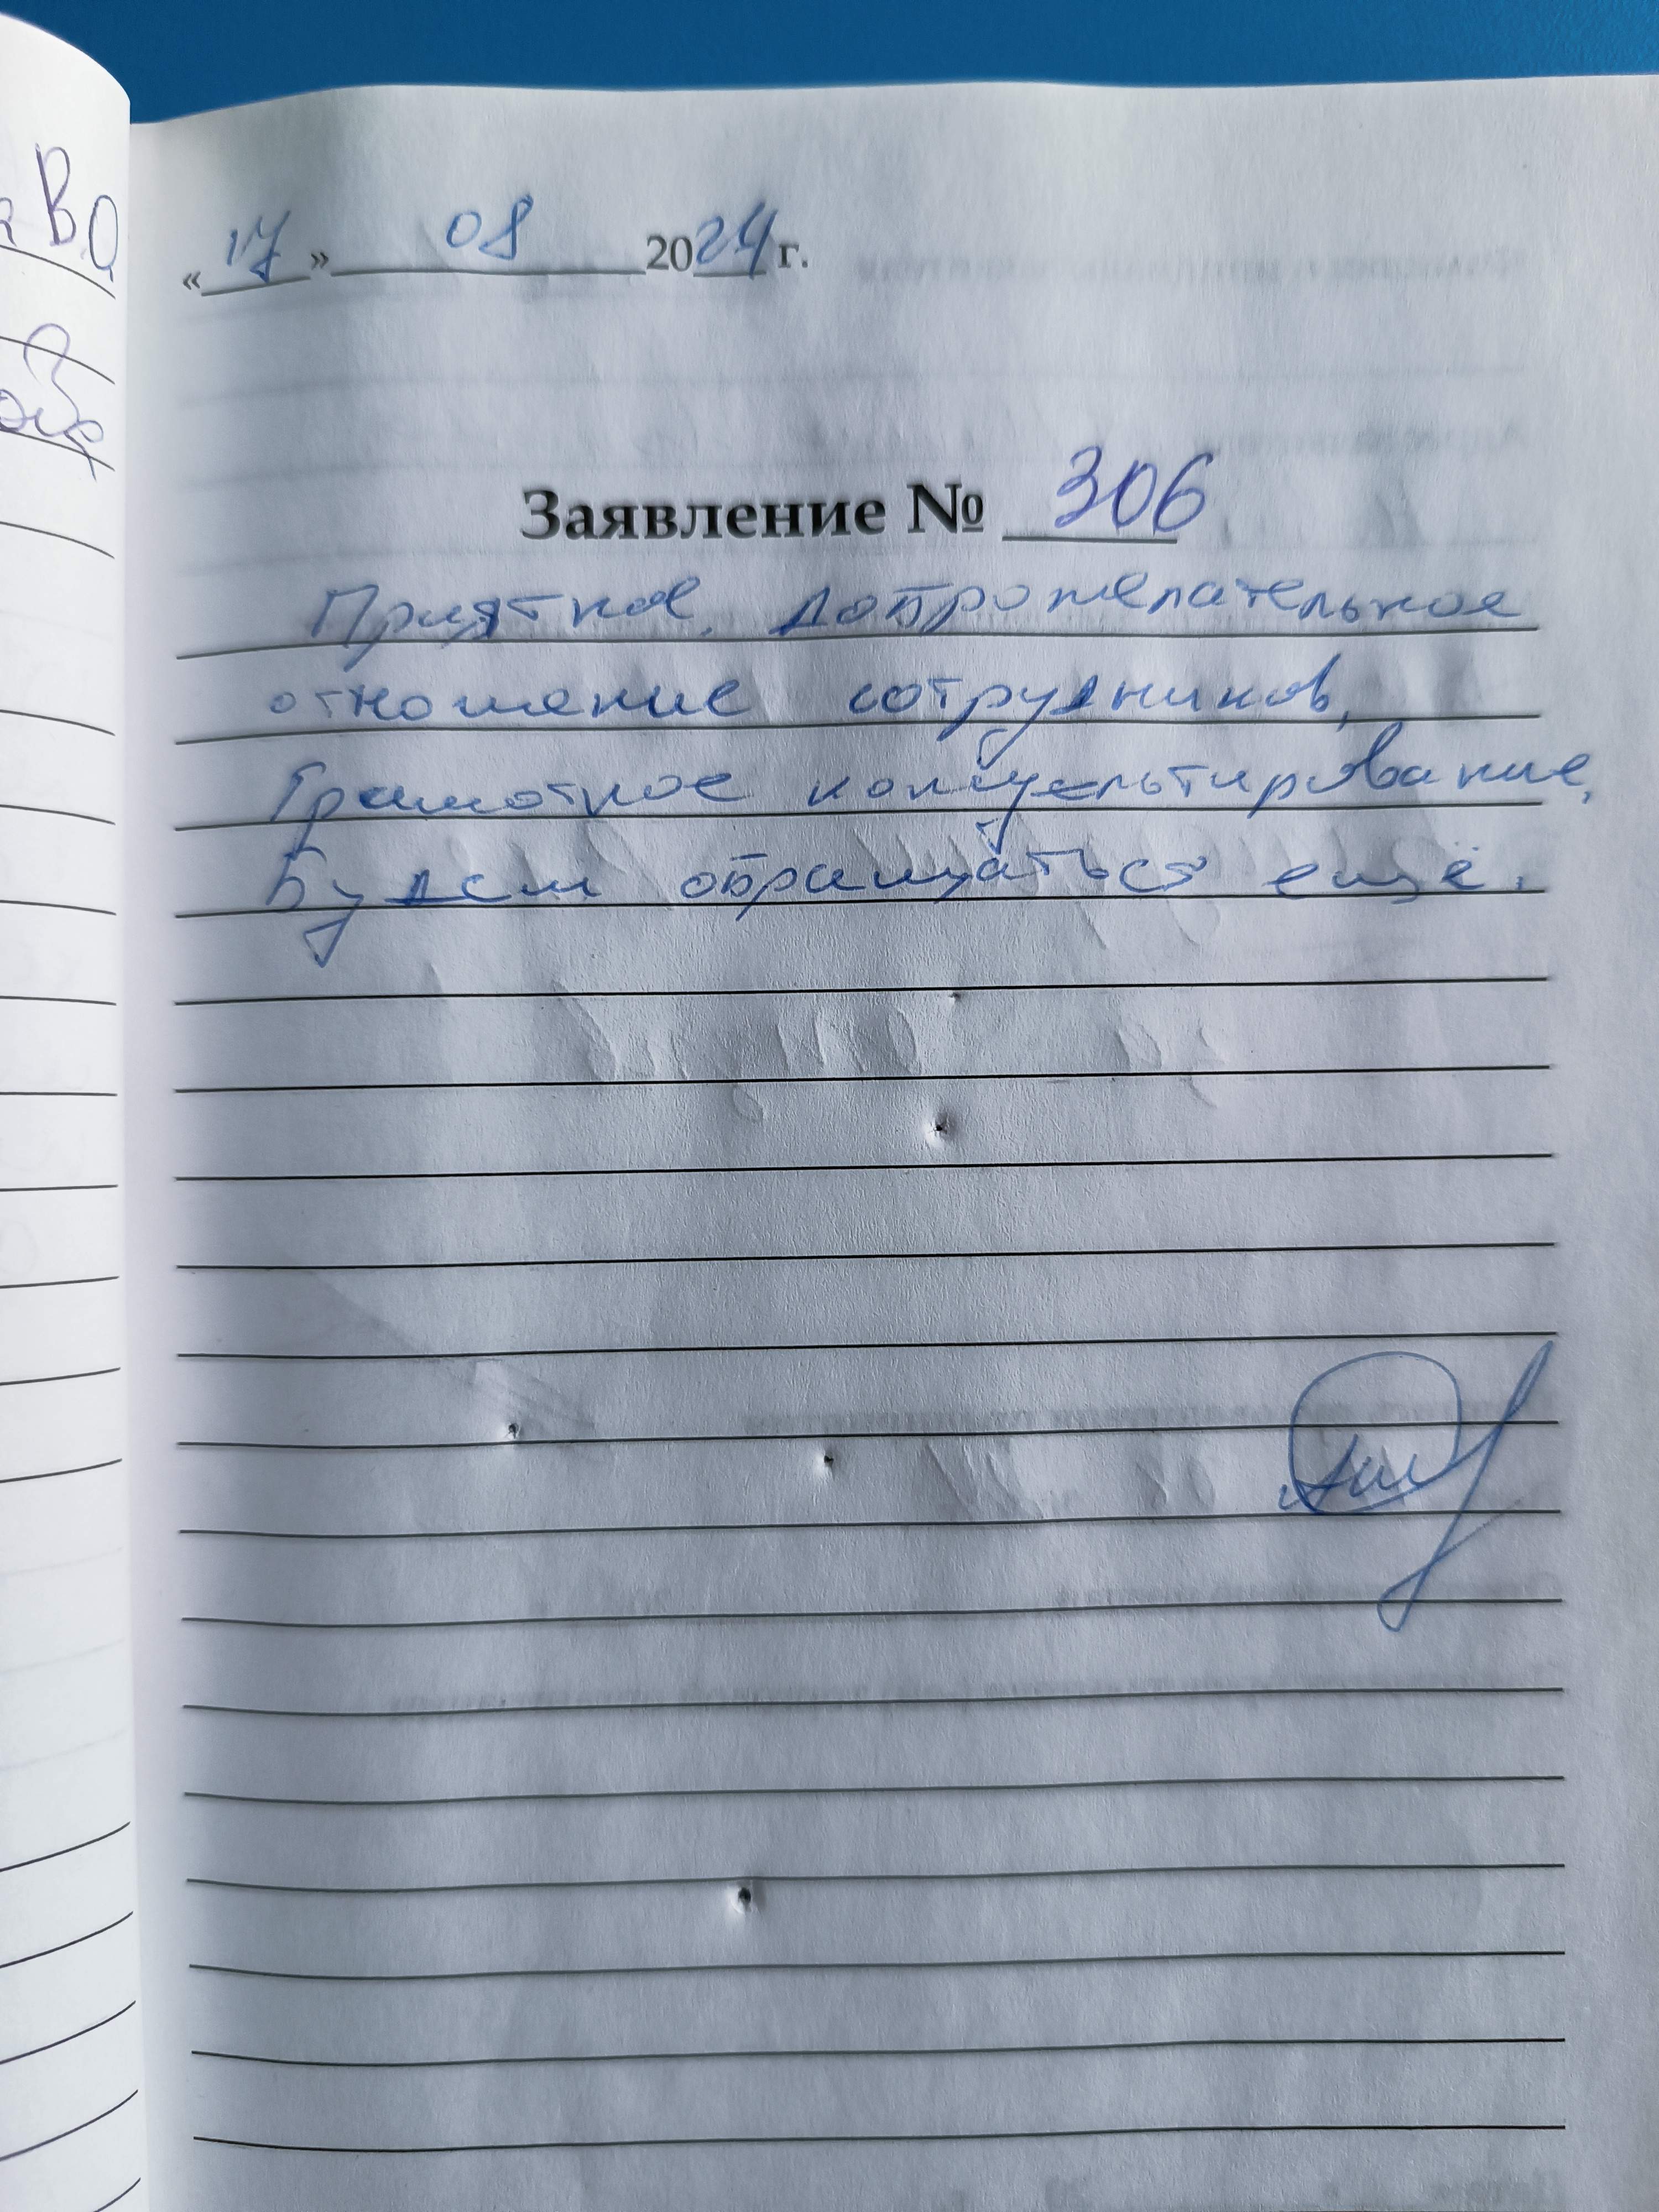 «17» 08 2024 г.
Заявление № 306
Приятное, доброжелательное
отношение сотрудников,
Грамотное консультирование,
Будем обращаться ещё.